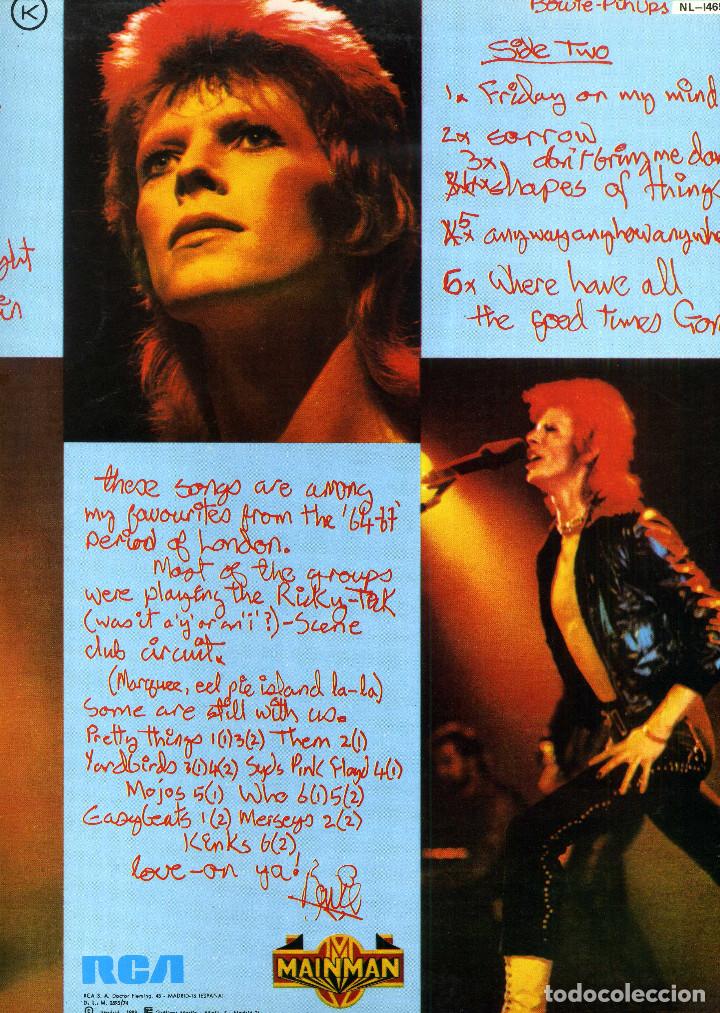 K
Bowie-PinUps
NL-146
Side Two
1x Friday on my mind
2x sorrow
3x, don't bring me dow
shapes of thing
5x anywayanyhowanywhe
6x Where have all
the good times Gon
ght
in
these songs are among
my favourites from the '64-67'
period of London.
Most of the groups
were playing the Ricky-Tick
(was it a 'y' or an 'i'?)-Scene
club circuit.
(Marquee, eel pie island la-la)
Some are still with us.
Pretty things 1(1)3(2) Them 2(1)
Yardbirds 3(1)4(2) Syds Pink Floyd 4(1)
Mojos 5(1) Who 6(1)5(2)
Easybeats 1(2) Merseys 2(2)
Kinks 6(2)
love-on ya!
Bowie
RCA
M
MAINMAN
RCA S. A. Doctor Fleming, 43 - MADRID-16 (ESPAÑA)
todocoleccion